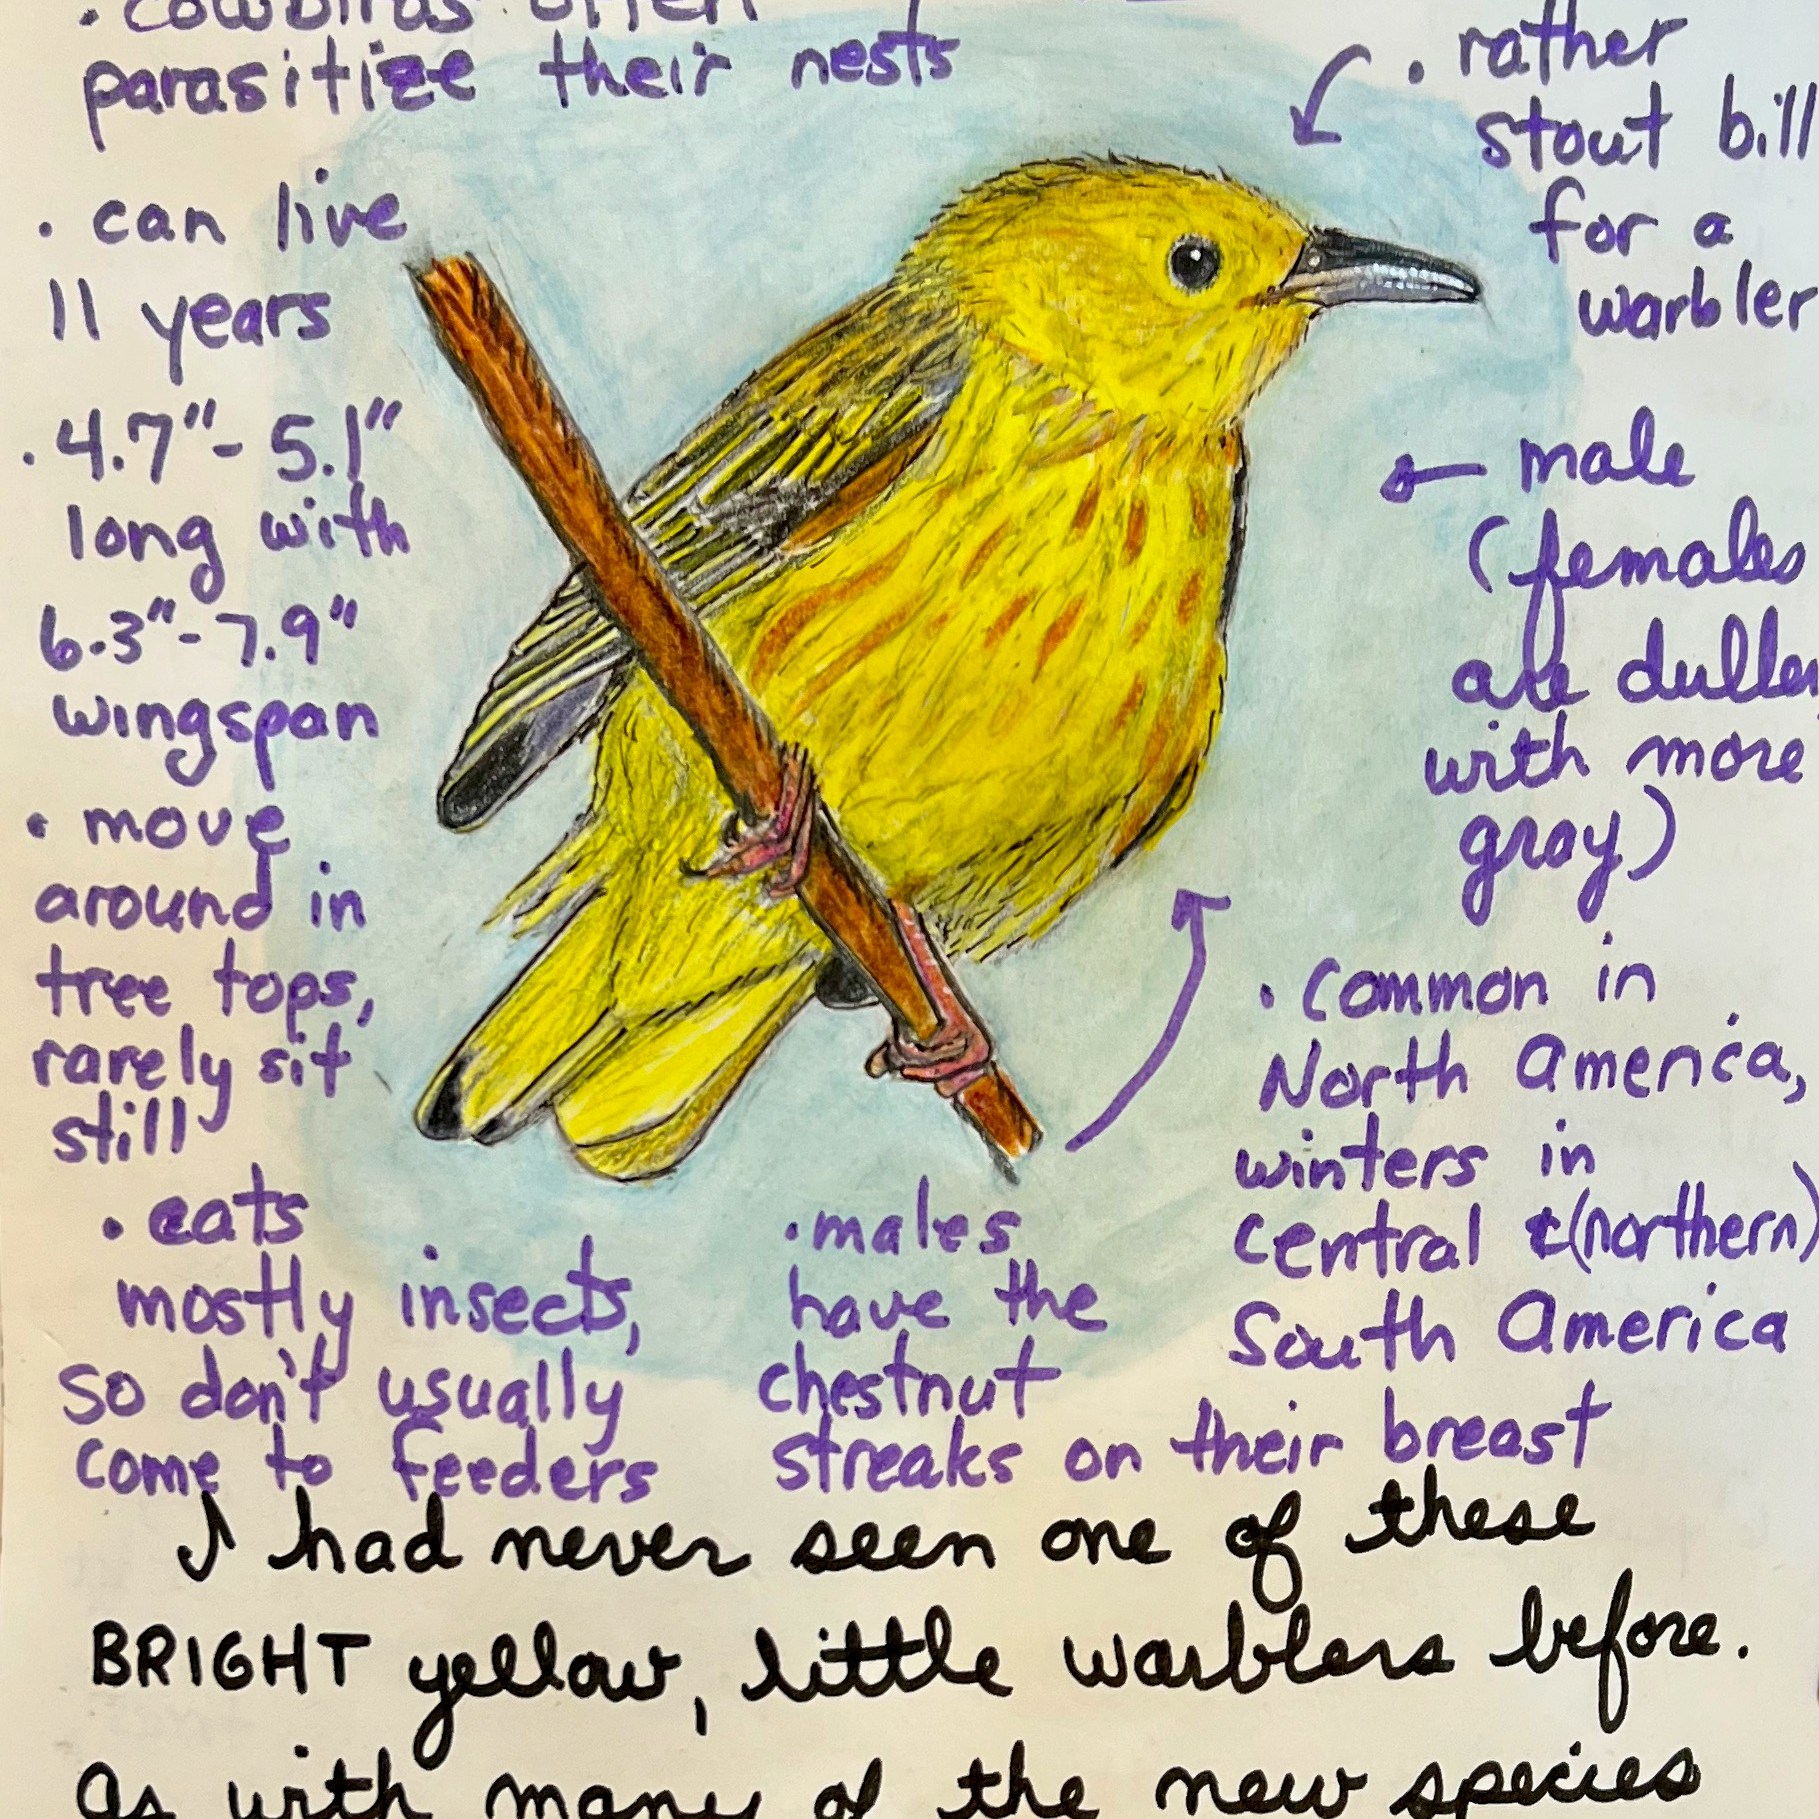 · cowbirds often
parasitize their nests
· can live
11 years
· 4.7"- 5.1"
long with
6.3"-7.9"
wingspan
· move
around in
tree tops,
rarely sit
still
· eats
mostly insects,
so don't usually
come to feeders
· rather
stout bill
for a
warbler
male
(females
are duller
with more
gray)
· common in
North America,
winters in
central &(northern)
South America
· males
have the
chestnut
streaks on their breast
I had never seen one of these
BRIGHT yellow, little warblers before.
As with many of the new species